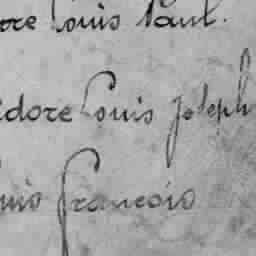 ore Louis Paul.
idore Louis Joseph
uis François